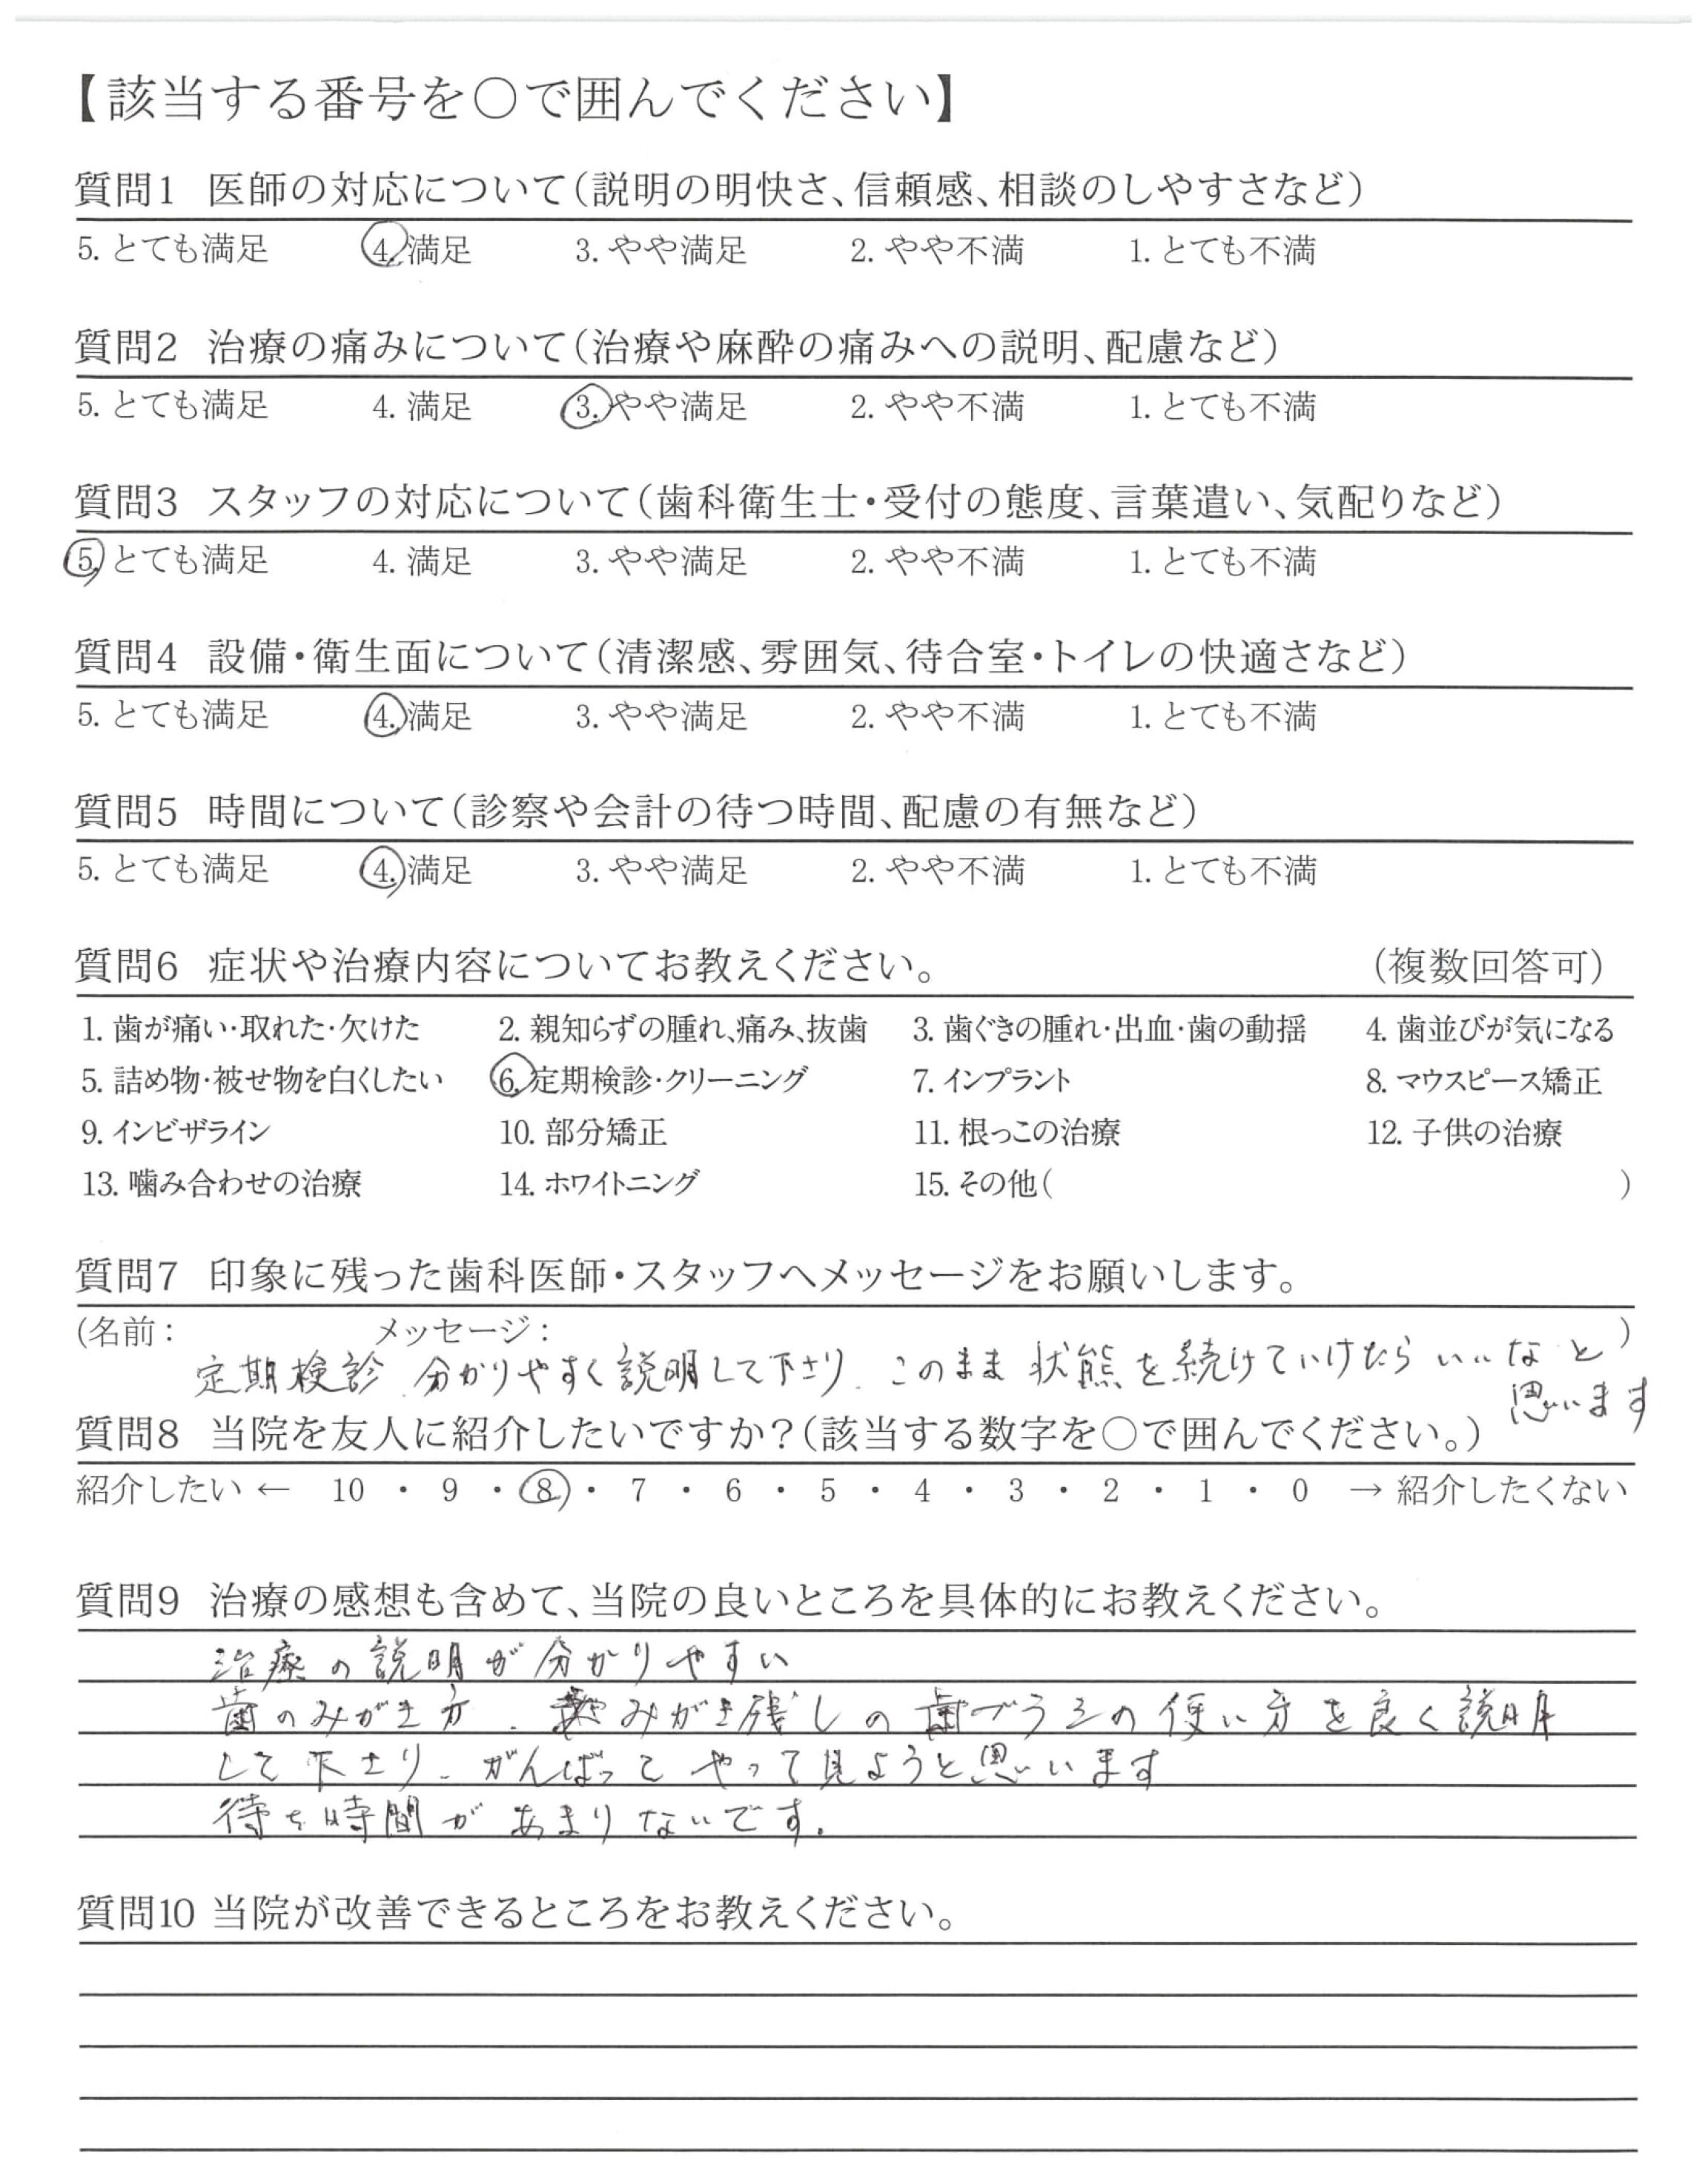 【該当する番号を○で囲んでください】
質問1 医師の対応について（説明の明快さ、信頼感、相談のしやすさなど）
5. とても満足 4. 満足 3. やや満足 2. やや不満 1. とても不満
質問2 治療の痛みについて（治療や麻酔の痛みへの説明、配慮など）
5. とても満足 4. 満足 3. やや満足 2. やや不満 1. とても不満
質問3 スタッフの対応について（歯科衛生士・受付の態度、言葉遣い、気配りなど）
5. とても満足 4. 満足 3. やや満足 2. やや不満 1. とても不満
質問4 設備・衛生面について（清潔感、雰囲気、待合室・トイレの快適さなど）
5. とても満足 4. 満足 3. やや満足 2. やや不満 1. とても不満
質問5 時間について（診察や会計の待つ時間、配慮の有無など）
5. とても満足 4. 満足 3. やや満足 2. やや不満 1. とても不満
質問6 症状や治療内容についてお教えください。 （複数回答可）
1. 歯が痛い・取れた・欠けた 2. 親知らずの腫れ、痛み、抜歯 3. 歯ぐきの腫れ・出血・歯の動揺 4. 歯並びが気になる
5. 詰め物・被せ物を白くしたい 6. 定期検診・クリーニング 7. インプラント 8. マウスピース矯正
9. インビザライン 10. 部分矯正 11. 根っこの治療 12. 子供の治療
13. 噛み合わせの治療 14. ホワイトニング 15. その他( )
質問7 印象に残った歯科医師・スタッフへメッセージをお願いします。
(名前： メッセージ： )
定期検診、分かりやすく説明して下さり、このまま状態を続けていけたらいいなと
思います
質問8 当院を友人に紹介したいですか？（該当する数字を○で囲んでください。）
紹介したい ← 10 ・ 9 ・ 8 ・ 7 ・ 6 ・ 5 ・ 4 ・ 3 ・ 2 ・ 1 ・ 0 → 紹介したくない
質問9 治療の感想も含めて、当院の良いところを具体的にお教えください。
治療の説明が分かりやすい
歯のみがき方、みがき残しの歯ブラシの使い方を良く説明
して下さり、がんばってやって見ようと思います
待ち時間があまりないです。
質問10 当院が改善できるところをお教えください。